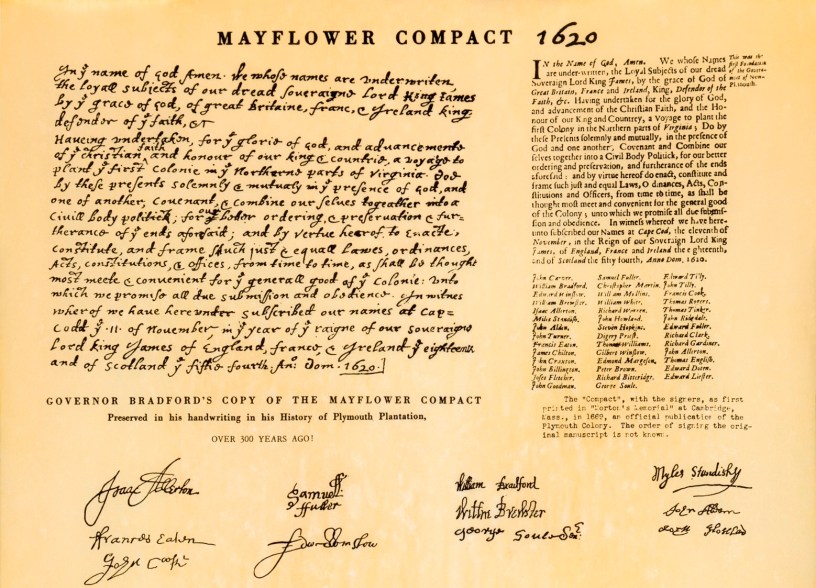 MAYFLOWER COMPACT 1620
In yͤ name of god Amen. We whose names are underwriten,
the loyall subjects of our dread soveraigne lord King James
by yͤ grace of God, of great Britaine, franc, & Ireland king,
defendor of yͤ faith, &c
Haveing undertaken, for yͤ glorie of god, and advancemente
of yͤ christian faith and honour of our king & countrie, a voyage to
plant yͤ first colonie in yͤ Northerne parts of Virginia. Doe
by these presents solemnly & mutualy in yͤ presence of God, and
one of another, covenant, & combine our selves togeather into a
Civill body politick; for our better ordering, & preservation & fur-
therance of yͤ ends aforsaid; and by vertue hearof, to enacte,
constitute, and frame shuch just & equall lawes, ordinances,
Acts, constitutions, & offices, from time to time, as shall be thought
most meete & convenient for yͤ generall good of yͤ Colonie: unto
which we promise all due submission and obedience. In witnes
wherof we have hereunder subscribed our names at Cap=
Codd yͤ ·11· of November, in yͤ year of yͤ raigne of our soveraigne
lord king James of England, france, & Ireland yͤ eighteenth,
and of Scotland yͤ fiftie fourth. Anͦ: Dom. 1620.
GOVERNOR BRADFORD'S COPY OF THE MAYFLOWER COMPACT
Preserved in his handwriting in his History of Plymouth Plantation,
OVER 300 YEARS AGO!
IN the Name of God, Amen. We whose Names
are under-written, the Loyal Subjects of our dread
Soveraign Lord King James, by the grace of God of
Great Britain, France and Ireland, King, Defendor of the
Faith, &c. Having undertaken for the glory of God,
and advancement of the Christian Faith, and the Ho-
nour of our King and Countrey, a Voyage to plant the
first Colony in the Northern parts of Virginia; Do by
these Presents solemnly and mutually, in the presence of
God and one another, Covenant and Combine our
selves together into a Civil Body Politick, for our better
ordering and preservation, and furtherance of the ends
aforesaid: and by virtue hereof do enact, constitute and
frame such just and equal Laws, Ordinances, Acts, Con-
stitutions and Officers, from time to time, as shall be
thought most meet and convenient for the general good
of the Colony; unto which we promise all due submis-
sion and obedience. In witness whereof we have here-
unto subscribed our Names at Cape Cod, the eleventh of
November, in the Reign of our Soveraign Lord King
James, of England, France and Ireland the eighteenth,
and of Scotland the fifty fourth, Anno Dom. 1620.
This was the
first Foundation
of the Govern-
ment of New-
Plimouth.
John Carver. Samuel Fuller. Edward Tilly.
William Bradford. Christopher Martin. John Tilly.
Edward Winslow. William Mullins. Francis Cook.
William Brewster. William White. Thomas Rogers.
Isaac Allerton. Richard Warren. Thomas Tinker.
Miles Standish. John Howland. John Ridgdale.
John Alden. Steven Hopkins. Edward Fuller.
John Turner. Digery Priest. Richard Clark.
Francis Eaton. Thomas Williams. Richard Gardiner.
James Chilton. Gilbert Winslow. John Allerton.
John Craxton. Edmund Margeson. Thomas English.
John Billington. Peter Brown. Edward Doten.
Joses Fletcher. Richard Bitteridge. Edward Liester.
John Goodman. George Soule.
The "Compact", with the signers, as first
printed in "Morton's Memorial" at Cambridge,
Mass., in 1669, an official publication of the
Plymouth Colony. The order of signing the orig-
inal manuscript is not known.
Isaac Allerton
Samuell
ffuller
William Bradford
Myles Standish
Willm Brewster
John Alden
Frances Eaten
George Soule Ser.
John Cooke
Edw Winslow